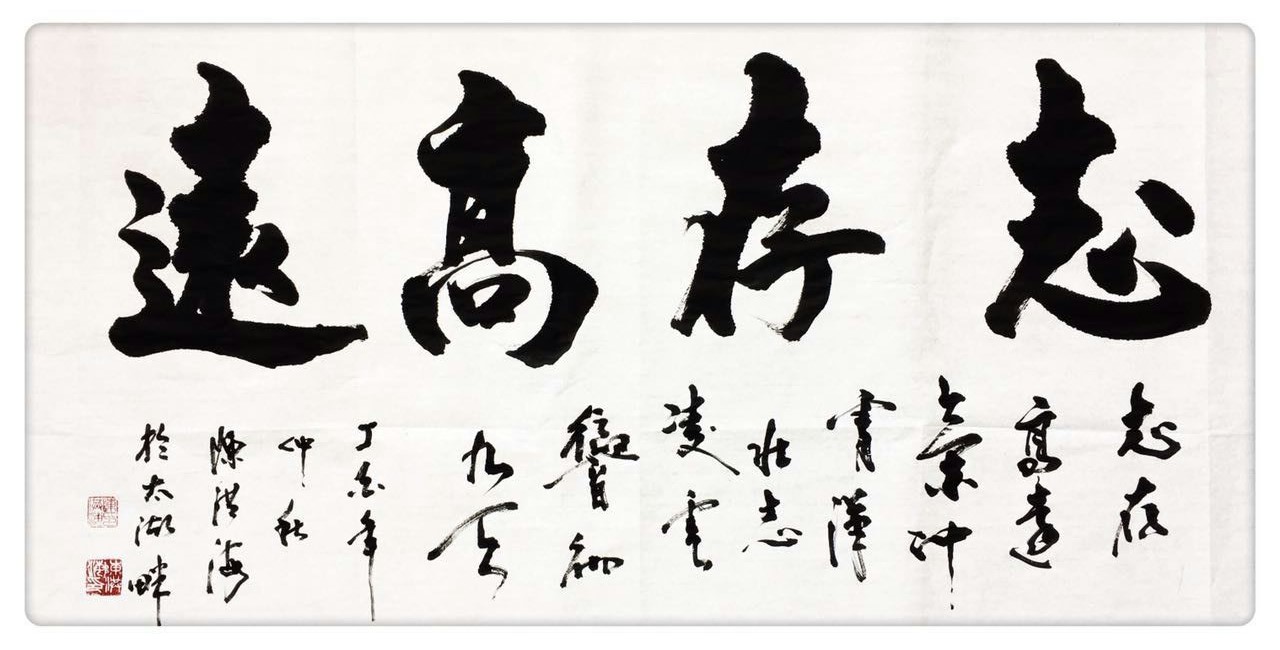 志存高遠
志存
高遠
氣沖
霄漢
壯志
凌雲
九天
丁酉年
仲秋
陳洪海
於太湖畔